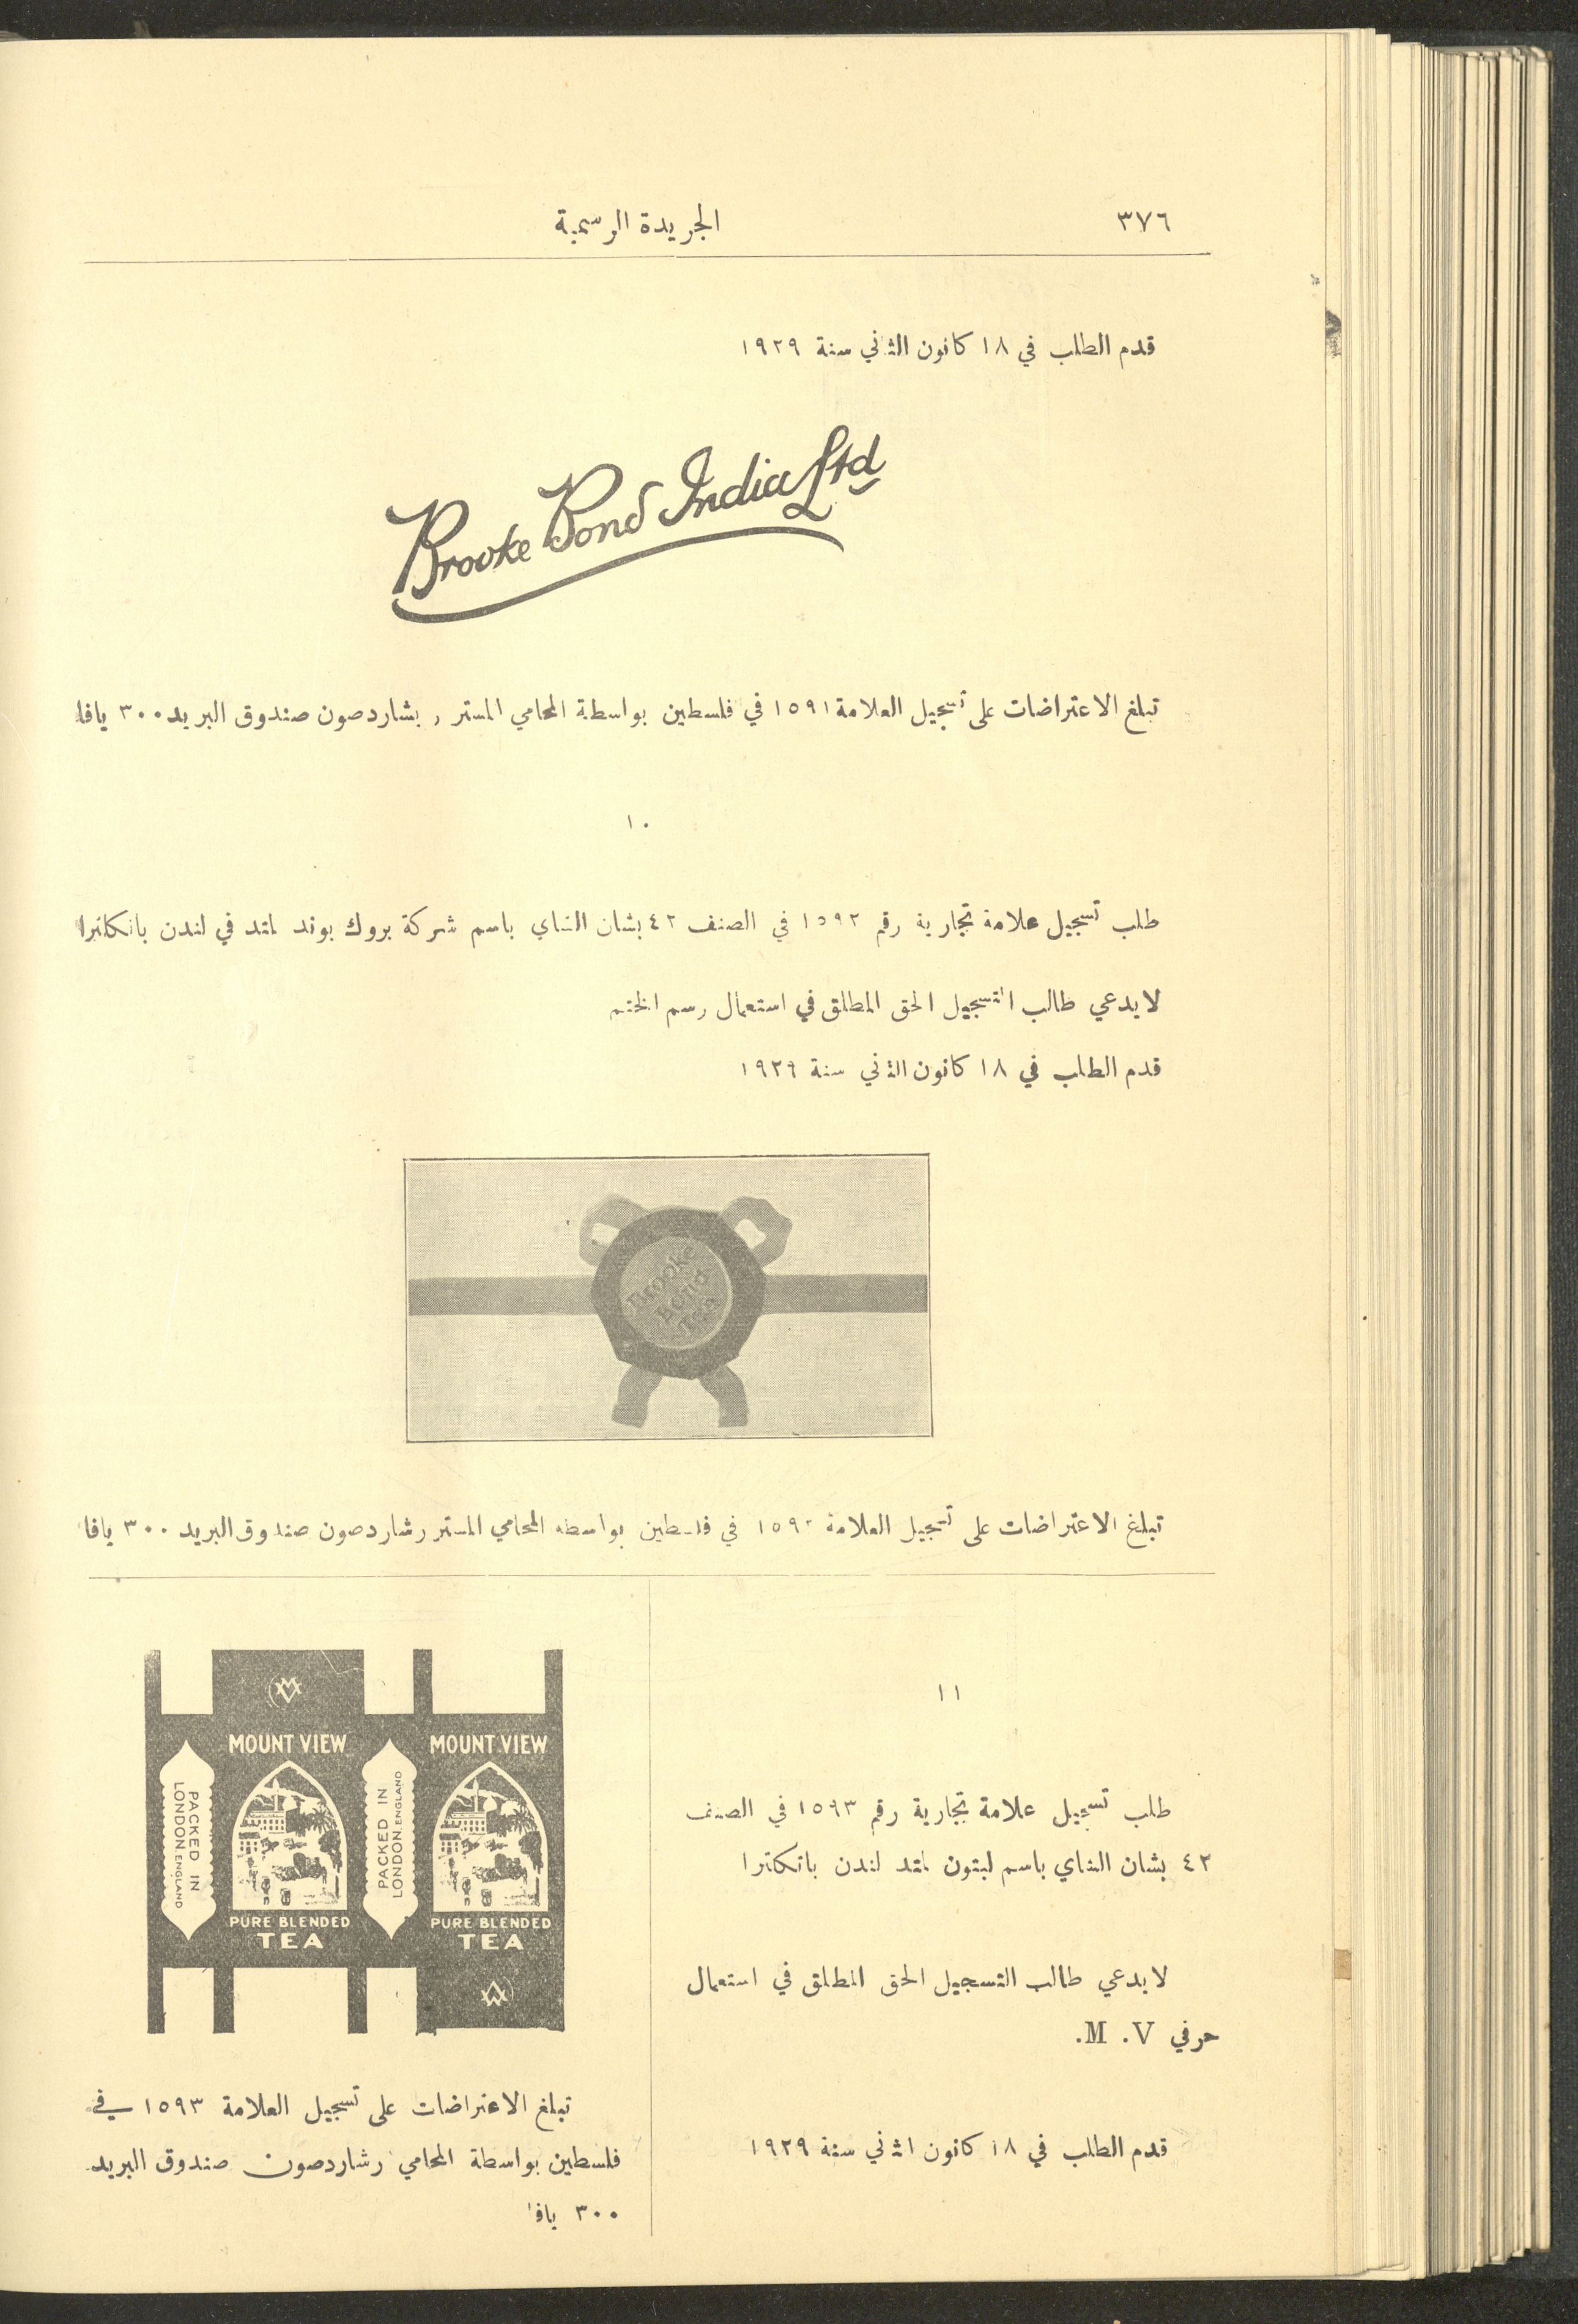 ٣٧٦
الجريدة الرسمية
قدم الطلب في ١٨ كانون الثاني سنة ١٩٢٩
Brooke Bond India Ltd
تبلغ الاعتراضات على تسجيل العلامة ١٥٩١ في فلسطين بواسطة المحامي المستر ر بشاردصون صندوق البريد ٣٠٠ يافا
١٠
طلب تسجيل علامة تجارية رقم ١٥٩٢ في الصنف ٤٢ بشان الشاي باسم شركة بروك بوند لمتد في لندن بانكلترا
لا يدعي طالب التسجيل الحق المطلق في استعمال رسم الختم
قدم الطلب في ١٨ كانون الثاني سنة ١٩٢٩
Brooke
Bond
Tea
تبلغ الاعتراضات على تسجيل العلامة ١٥٩٢ في فلسطين بواسطه المحامي المستر رشاردصون صندوق البريد ٣٠٠ يافا
١١
طلب تسجيل علامة تجارية رقم ١٥٩٣ في الصنف
٤٢ بشان الشاي باسم لبتون لمتد لندن بانكلترا
لا يدعي طالب التسجيل الحق المطلق في استعمال
حرفي M. V.
قدم الطلب في ١٨ كانون الثاني سنة ١٩٢٩
MOUNT VIEW
MOUNT VIEW
PACKED IN
LONDON. ENGLAND
PACKED IN
LONDON. ENGLAND
PURE BLENDED
TEA
PURE BLENDED
TEA
تبلغ الاعتراضات على تسجيل العلامة ١٥٩٣ في
فلسطين بواسطة المحامي رشاردصون صندوق البريد
٣٠٠ يافا